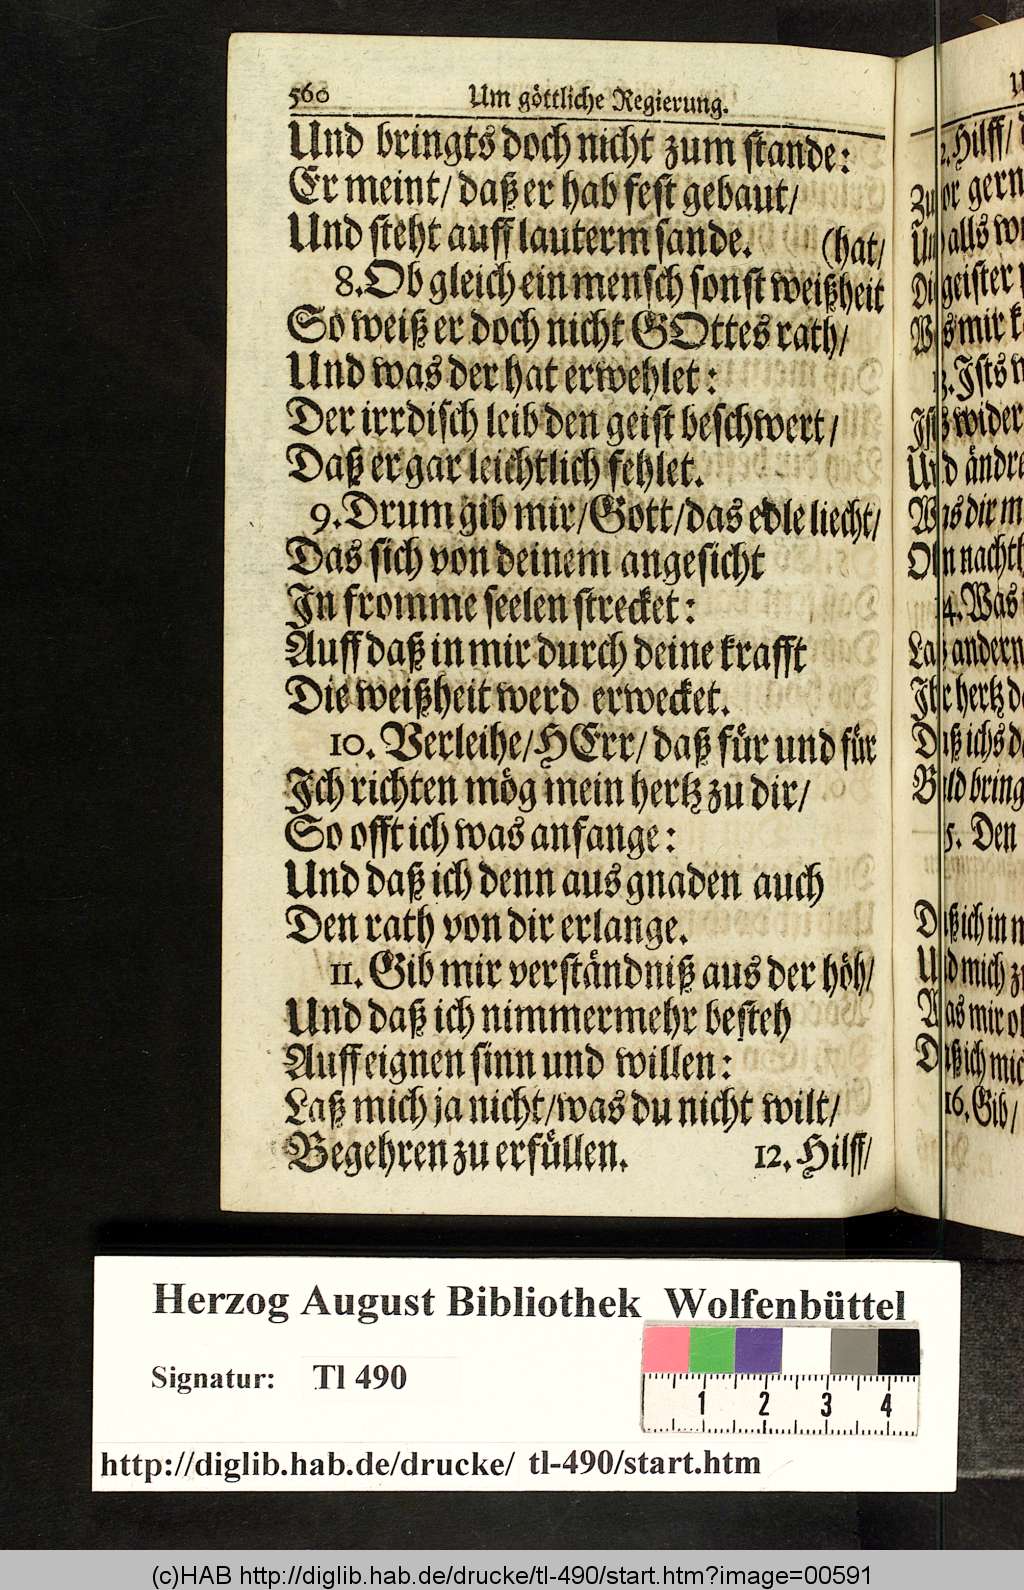 560 Um göttliche Regierung.
Und bringts doch nicht zum stande:
Er meint/ daß er hab fest gebaut/
Und steht auff lauterm sande. (hat/
8. Ob gleich ein mensch sonst weißheit
So weiß er doch nicht GOttes rath/
Und was der hat erwehlet:
Der irrdisch leib den geist beschwert/
Daß er gar leichtlich fehlet.
9. Drum gib mir/ Gott/ das edle liecht/
Das sich von deinem angesicht
In fromme seelen strecket:
Auff daß in mir durch deine krafft
Die weißheit werd erwecket.
10. Verleihe/ HErr/ daß für und für
Ich richten mög mein hertz zu dir/
So offt ich was anfange:
Und daß ich denn aus gnaden auch
Den rath von dir erlange.
11. Gib mir verständniß aus der höh/
Und daß ich nimmermehr besteh
Auff eignen sinn und willen:
Laß mich ja nicht/ was du nicht wilt/
Begehren zu erfüllen. 12. Hilff/
Hilff/
gern
alls
geister
mir
Ists
wider
ändre
dir
14. Was
andern
hertz
ichs
bring
Den
ich in
mich
mir
ich mich
16. Gib/
Herzog August Bibliothek Wolfenbüttel
Signatur: Tl 490
1 2 3 4
http://diglib.hab.de/drucke/ tl-490/start.htm
(c)HAB http://diglib.hab.de/drucke/tl-490/start.htm?image=00591